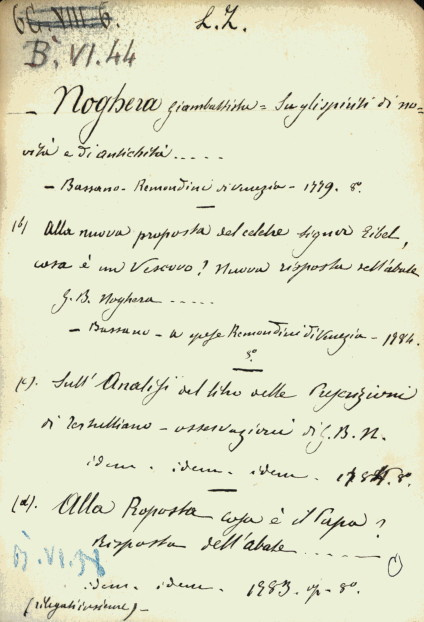 GG VIII 6.
L.Z.
B. VI. 44
— Noghera Giambattista = Sugli spiriti di no-
vità e di antichità .....
— Bassano - Remondini di Venezia - 1779. 8°.
(b) Alla nuova proposta del celebre signor Eibel,
cosa è un Vescovo? Nuova risposta dell'abate
G. B. Noghera .....
— Bassano - a spese Remondini di Venezia - 1784.
8°
(c). Sull'Analisi del libro delle Prescrizioni
di Tertulliano - osservazioni di G. B. N.
idem. idem. idem. 8°.
(d). Alla Proposta cosa è il Papa?
Risposta dell'abate .....
B. VI.
idem. idem. 1783. op. 8°.
(rilegati insieme) —